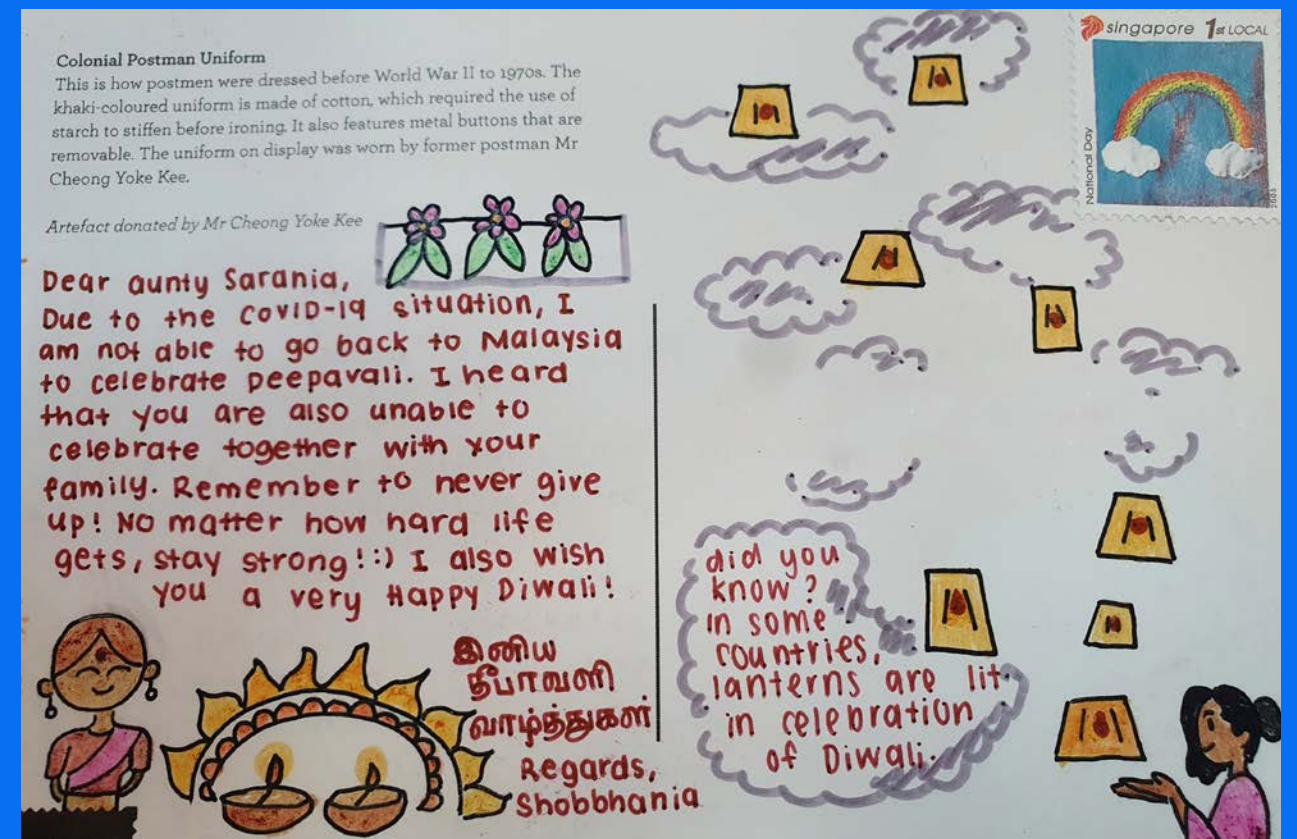 Colonial Postman Uniform
This is how postmen were dressed before World War II to 1970s. The
khaki-coloured uniform is made of cotton, which required the use of
starch to stiffen before ironing. It also features metal buttons that are
removable. The uniform on display was worn by former postman Mr
Cheong Yoke Kee.
Artefact donated by Mr Cheong Yoke Kee
Dear aunty Sarania,
Due to the COVID-19 situation, I
am not able to go back to Malaysia
to celebrate peepavali. I heard
that you are also unable to
celebrate together with your
family. Remember to never give
up! No matter how hard life
gets, stay strong!:) I also wish
you a very Happy Diwali!
இனிய
தீபாவளி
வாழ்த்துகள்
Regards,
Shobbhania
singapore 1st LOCAL
National Day
2003
did you
know?
in some
countries,
lanterns are lit
in celebration
of Diwali.